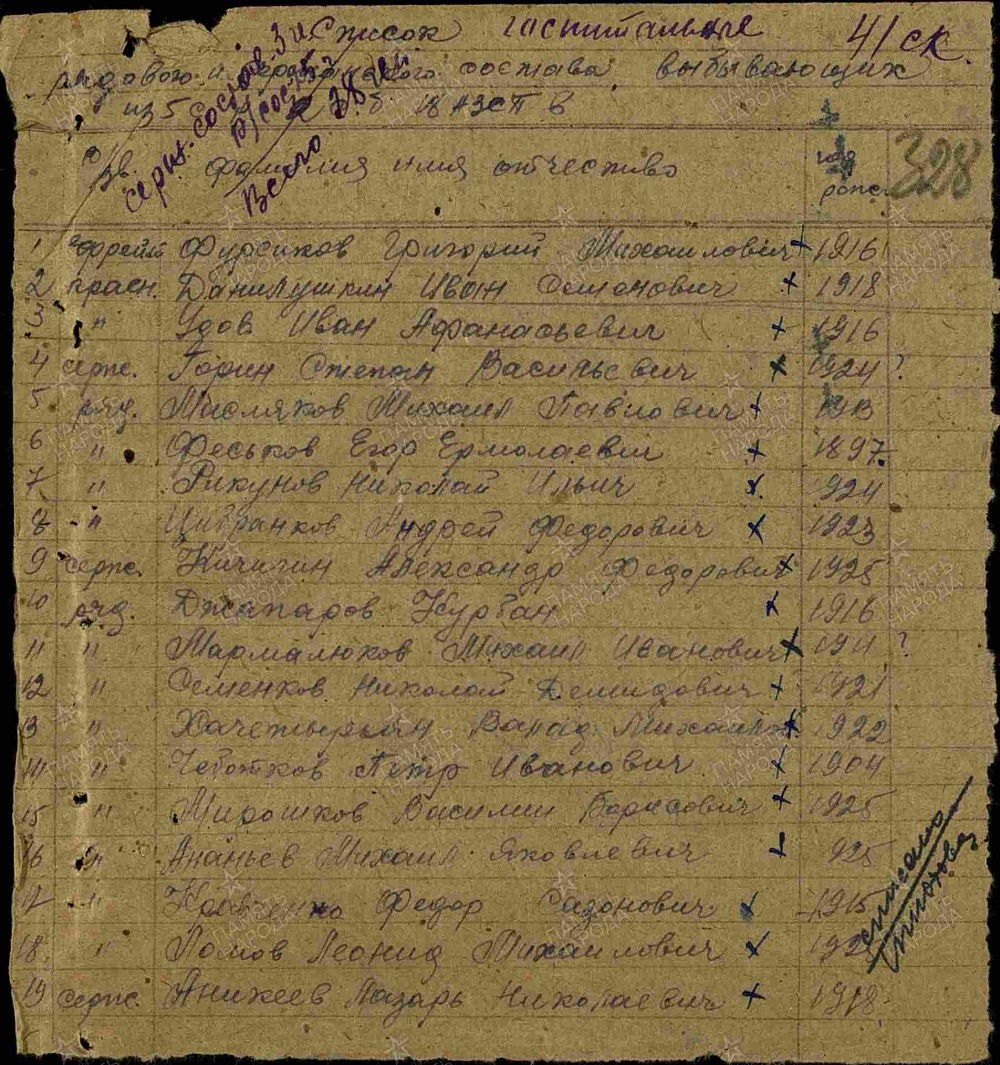 Список госпитальные 41 ск.
рядового и сержантского состава выбывающих
из 5 18 АЗСП в
серж. состав. 3 ч.
р/состав
Всего 38 чел
328
с/зв. фамилия имя отчество год рожд.
1 ефрейт Фурсиков Григорий Михаилович + 1916
2 красн. Данилушкин Иван Семонович + 1918
3 " Удов Иван Афанасьевич + 1916
4 серж. Горин Степан Васильевич + 1924 ?
5 ряд. Масляков Михаил Павлович +
6 " Феськов Егор Ермолаевич + 1897.
7 " Рикунов Николай Ильич х 924
8 " Цибранков Андрей Федорович х 1923
9 серж. Кичигин Александр Федорович х 1925
10 ряд. Джапаров Курбан х 1916
11 " Мармалюков Михаил Иванович х ?
12 " Семенков Николай Демидович + 1921
13 " Ванад х 922
14 " Чеботков Петр Иванович + 1904
15 " Мирошков Василии Борисович + 1925
16 " Ананьев Михаил Яковлевич + 925
17 " Кравченко Федор Сазонович х 1915
18. " Ломов Леонид Михаилович х
19 серж. Аникеев Лазарь Николаевич + 1918
списано